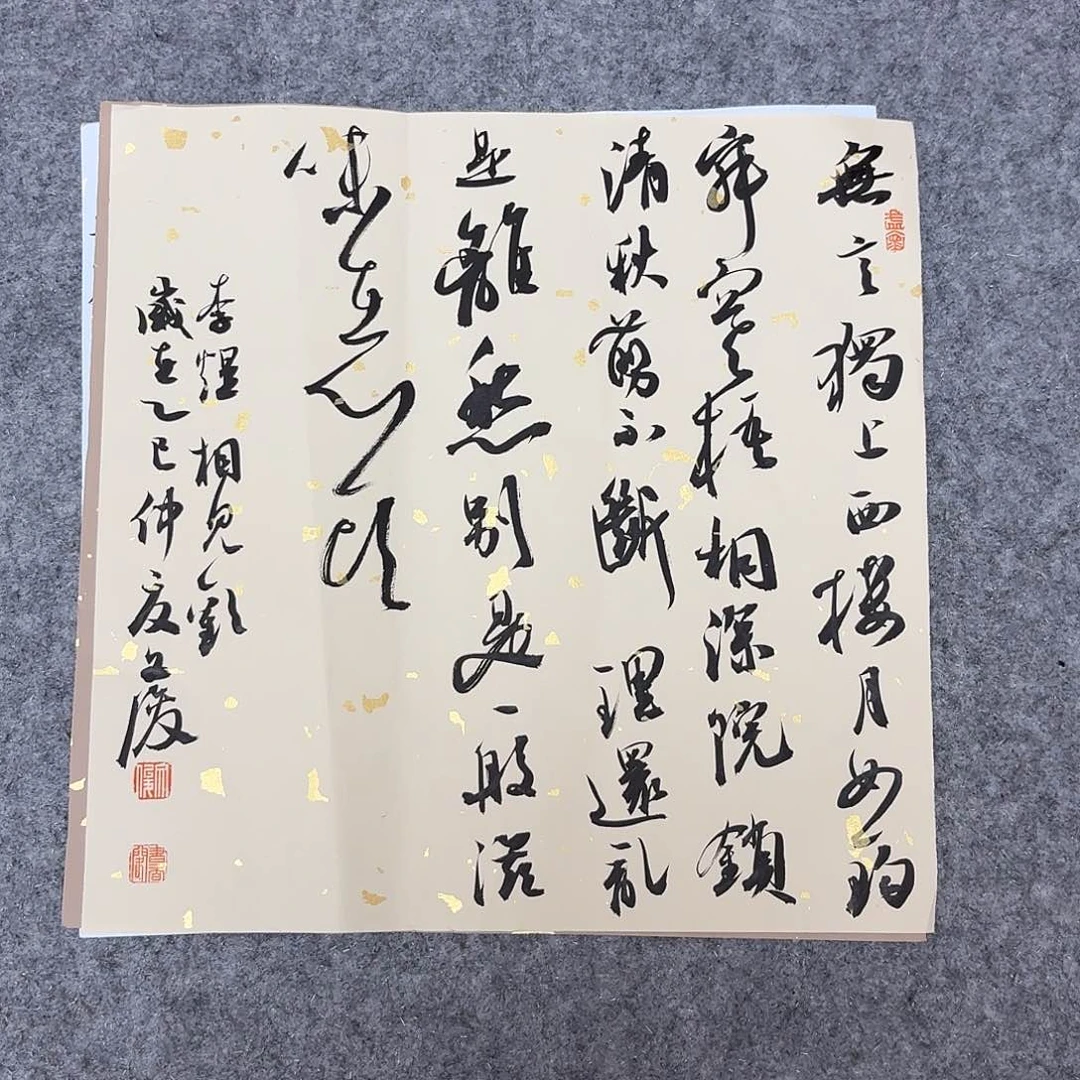 無言獨上西樓月如鈎
寂寞梧桐深院鎖
清秋剪不斷理還乱
是離愁別是一般滋
味在心頭
李煜 相見歡
歲在乙巳仲夏